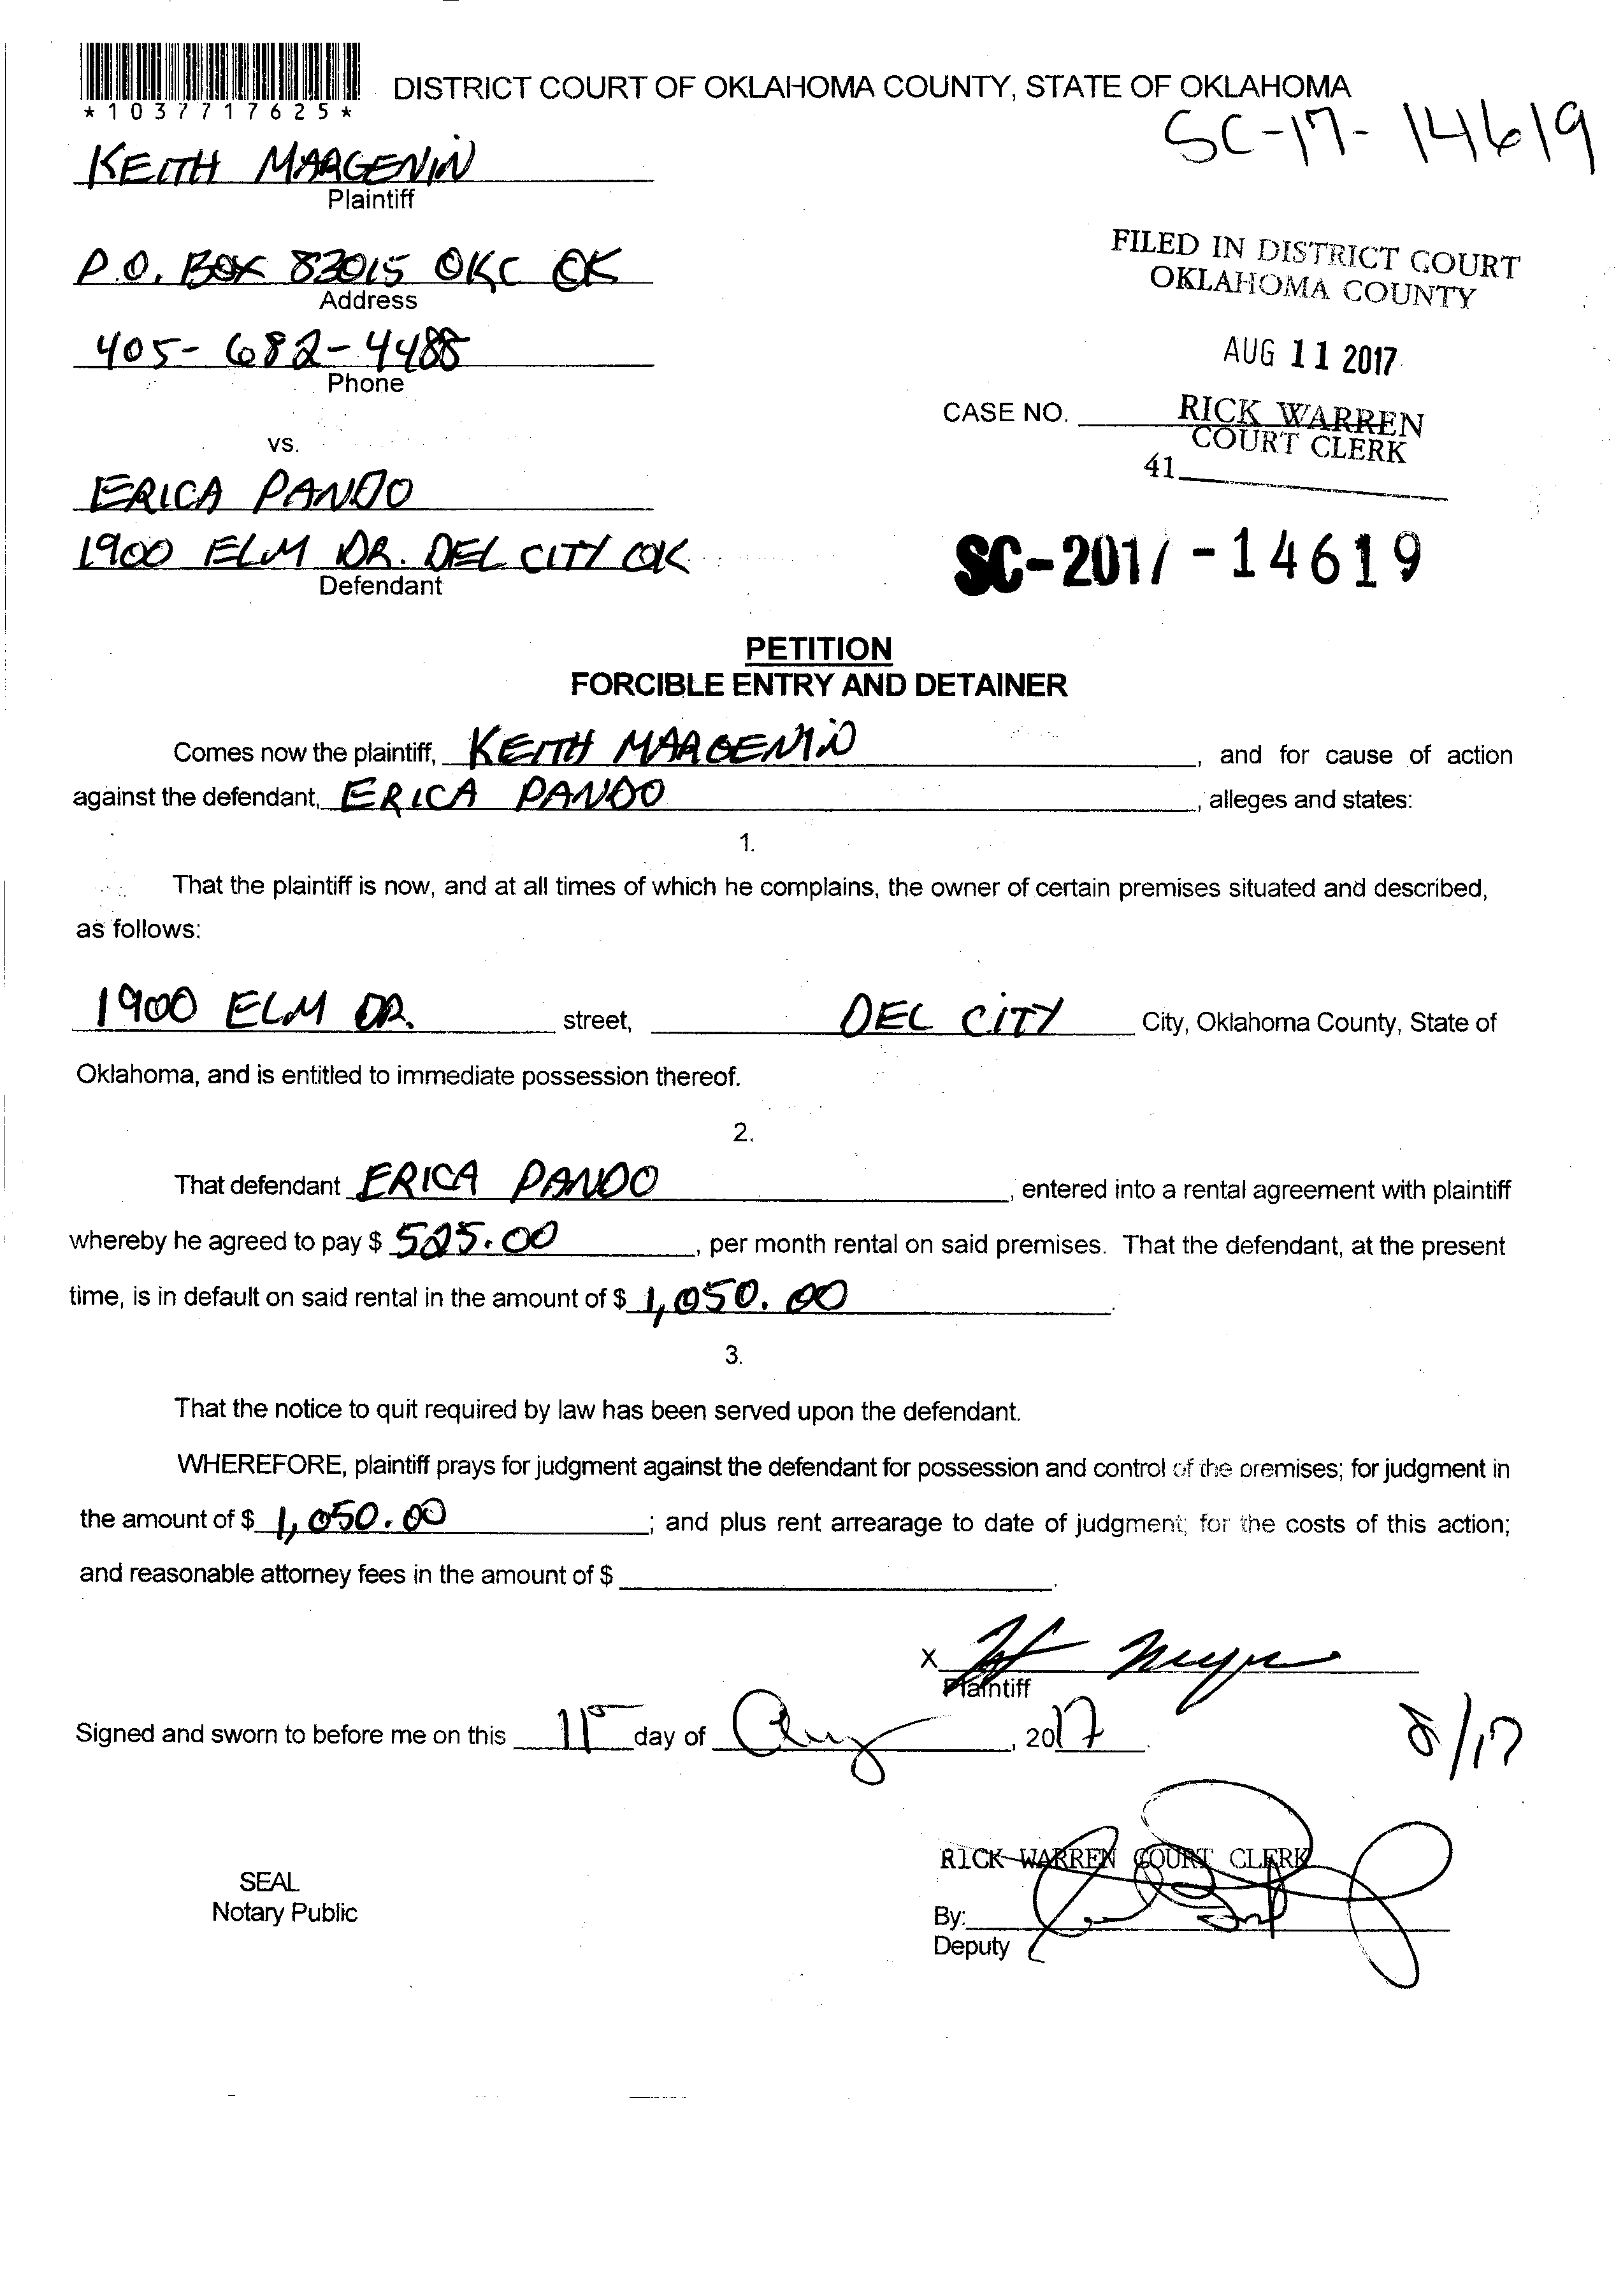 *1037717625*
DISTRICT COURT OF OKLAHOMA COUNTY, STATE OF OKLAHOMA
SC-17-14619
KEITH MARGENIN
Plaintiff
P.O. BOX 83015 OKC OK
Address
405-682-4488
Phone
FILED IN DISTRICT COURT
OKLAHOMA COUNTY
AUG 11 2017
CASE NO.
RICK WARREN
COURT CLERK
41
vs.
ERICA PANDO
1900 ELM DR. DEL CITY OK
Defendant
SC-2017-14619
PETITION
FORCIBLE ENTRY AND DETAINER
Comes now the plaintiff, KEITH MARGENIN, and for cause of action
against the defendant, ERICA PANDO, alleges and states:
1.
That the plaintiff is now, and at all times of which he complains, the owner of certain premises situated and described,
as follows:
1900 ELM DR. street, DEL CITY City, Oklahoma County, State of
Oklahoma, and is entitled to immediate possession thereof.
2.
That defendant ERICA PANDO, entered into a rental agreement with plaintiff
whereby he agreed to pay $ 525.00, per month rental on said premises. That the defendant, at the present
time, is in default on said rental in the amount of $ 1,050.00.
3.
That the notice to quit required by law has been served upon the defendant.
WHEREFORE, plaintiff prays for judgment against the defendant for possession and control of the premises; for judgment in
the amount of $ 1,050.00; and plus rent arrearage to date of judgment; for the costs of this action;
and reasonable attorney fees in the amount of $
X
Plaintiff
Signed and sworn to before me on this 11 day of Aug, 2017.
8/17
SEAL
Notary Public
RICK WARREN COURT CLERK
By:
Deputy